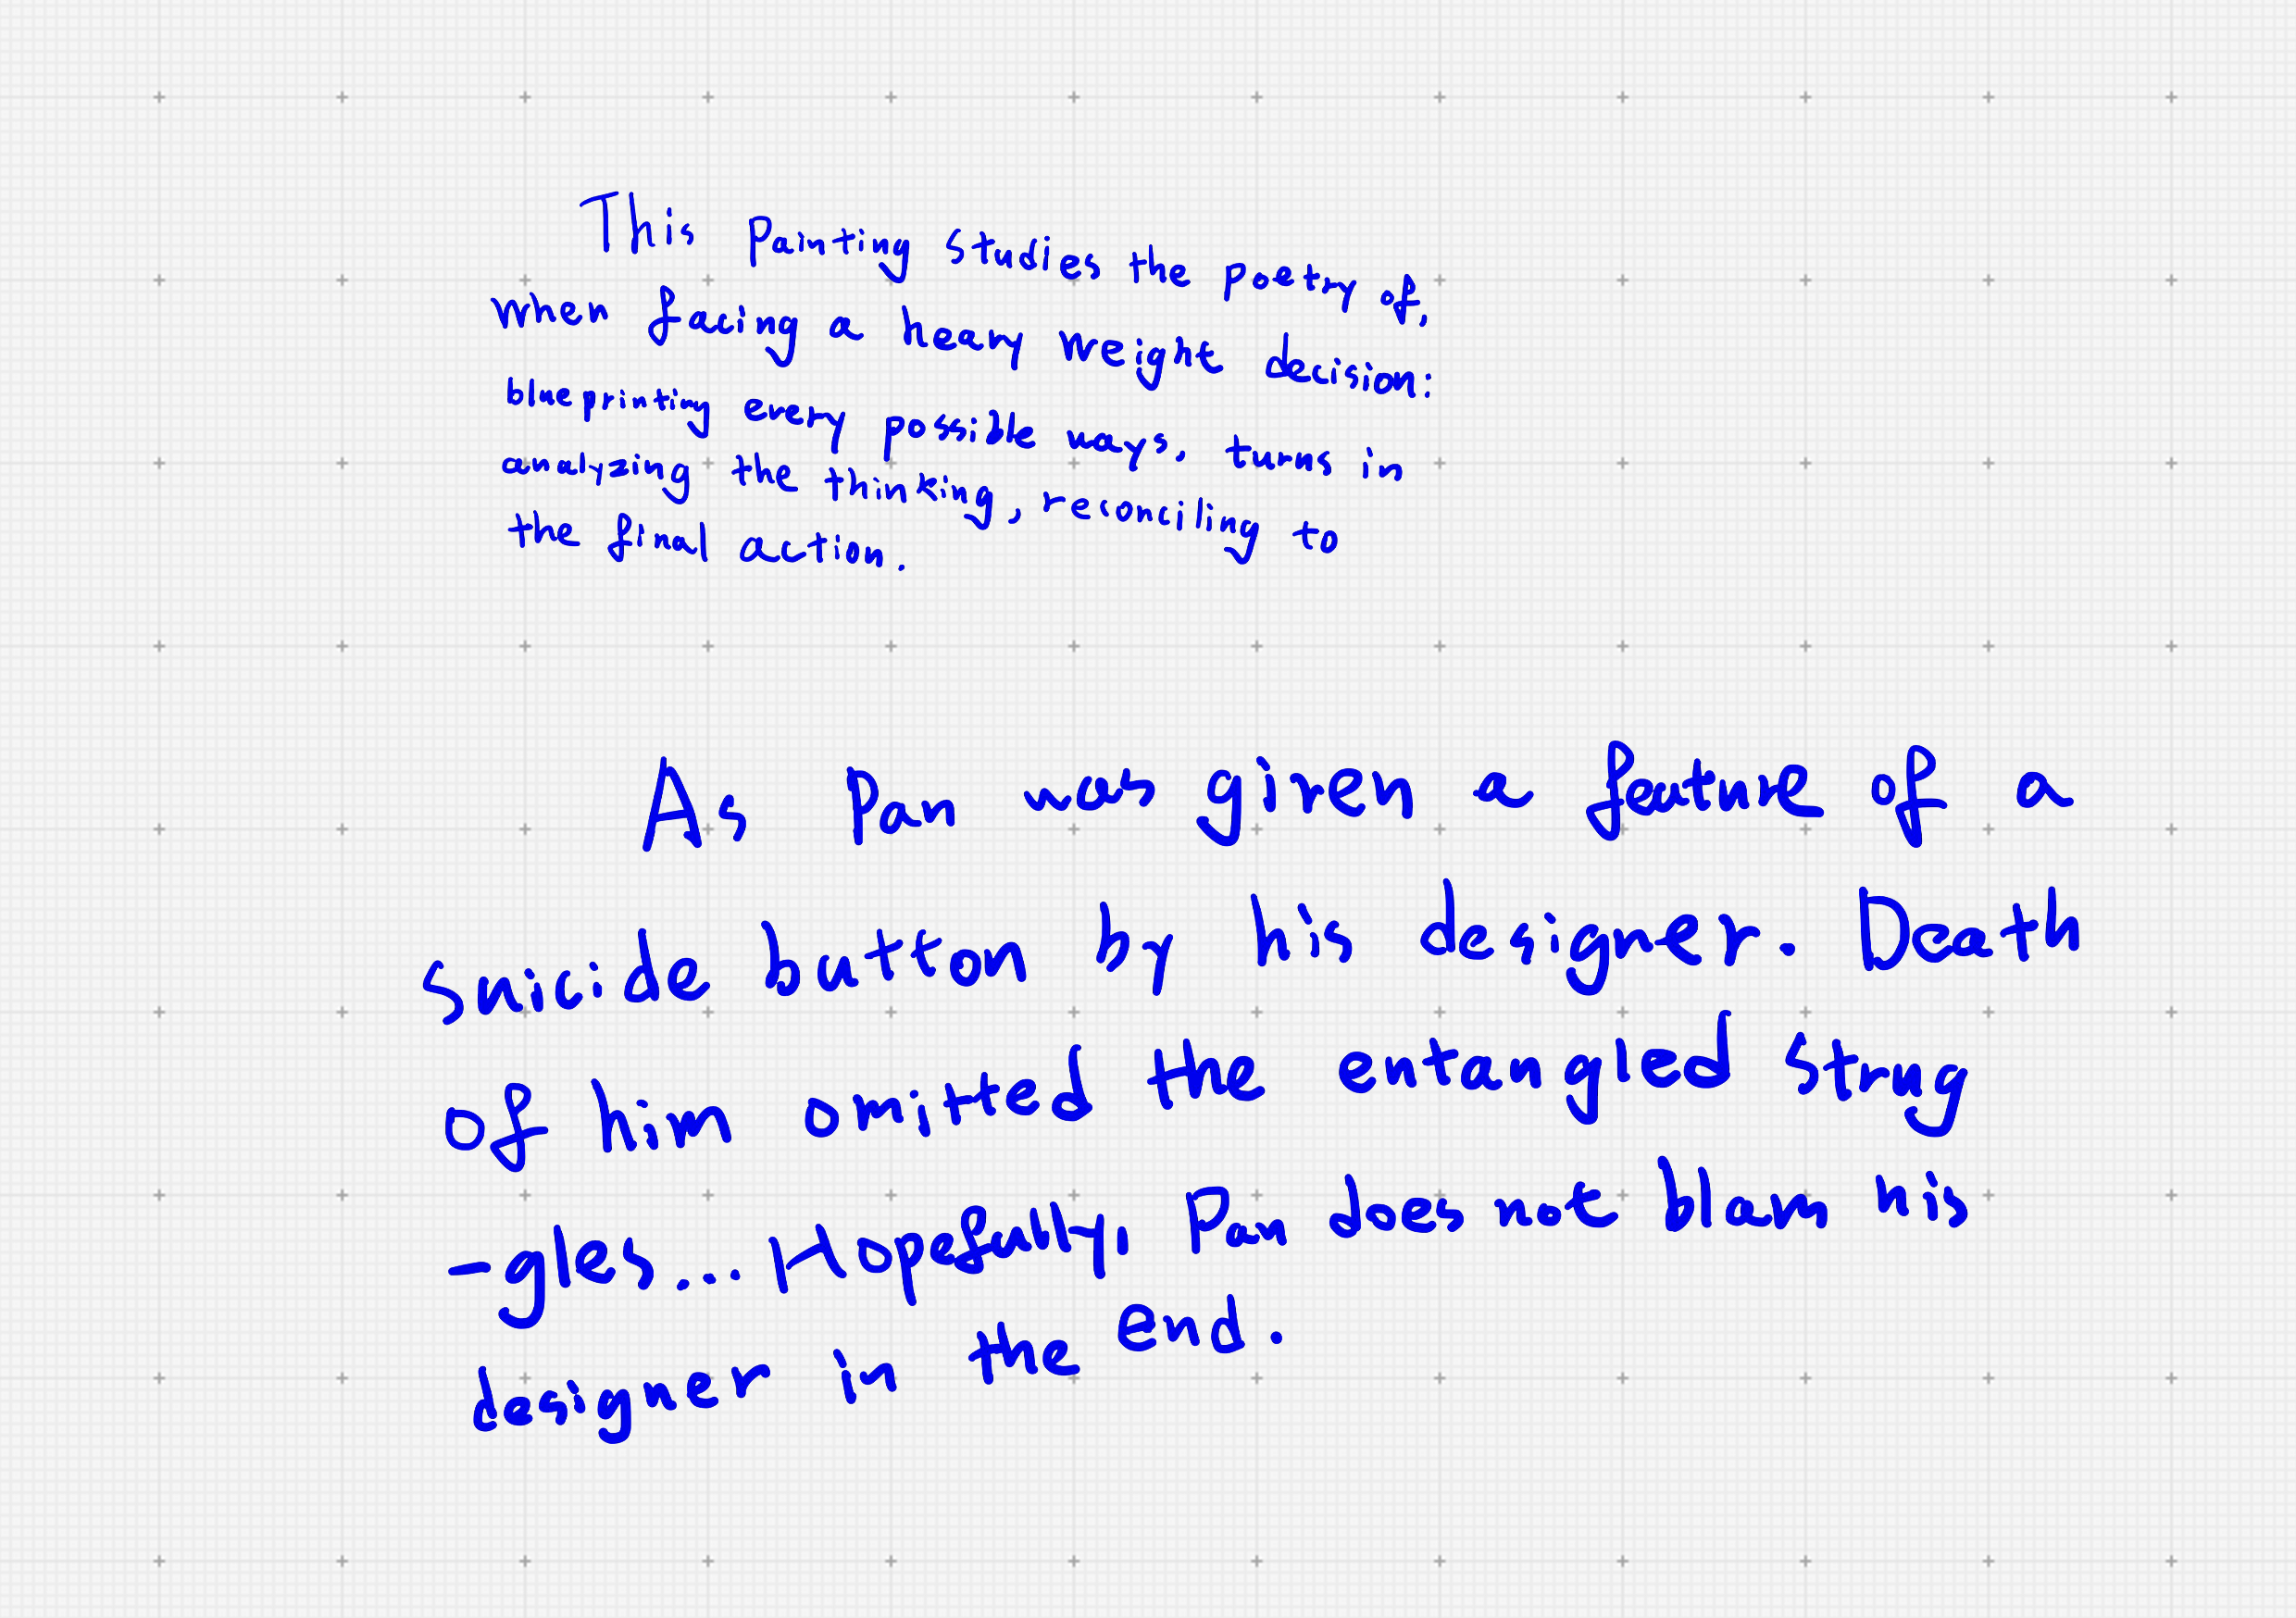 This Painting Studies the poetry of,
when facing a heavy weight decision:
blueprinting every possible ways, turns in
analyzing the thinking, reconciling to
the final action.
As Pan was given a feature of a
suicide button by his designer. Death
of him omitted the entangled strug
-gles... Hopefully, Pan does not blam his
designer in the end.